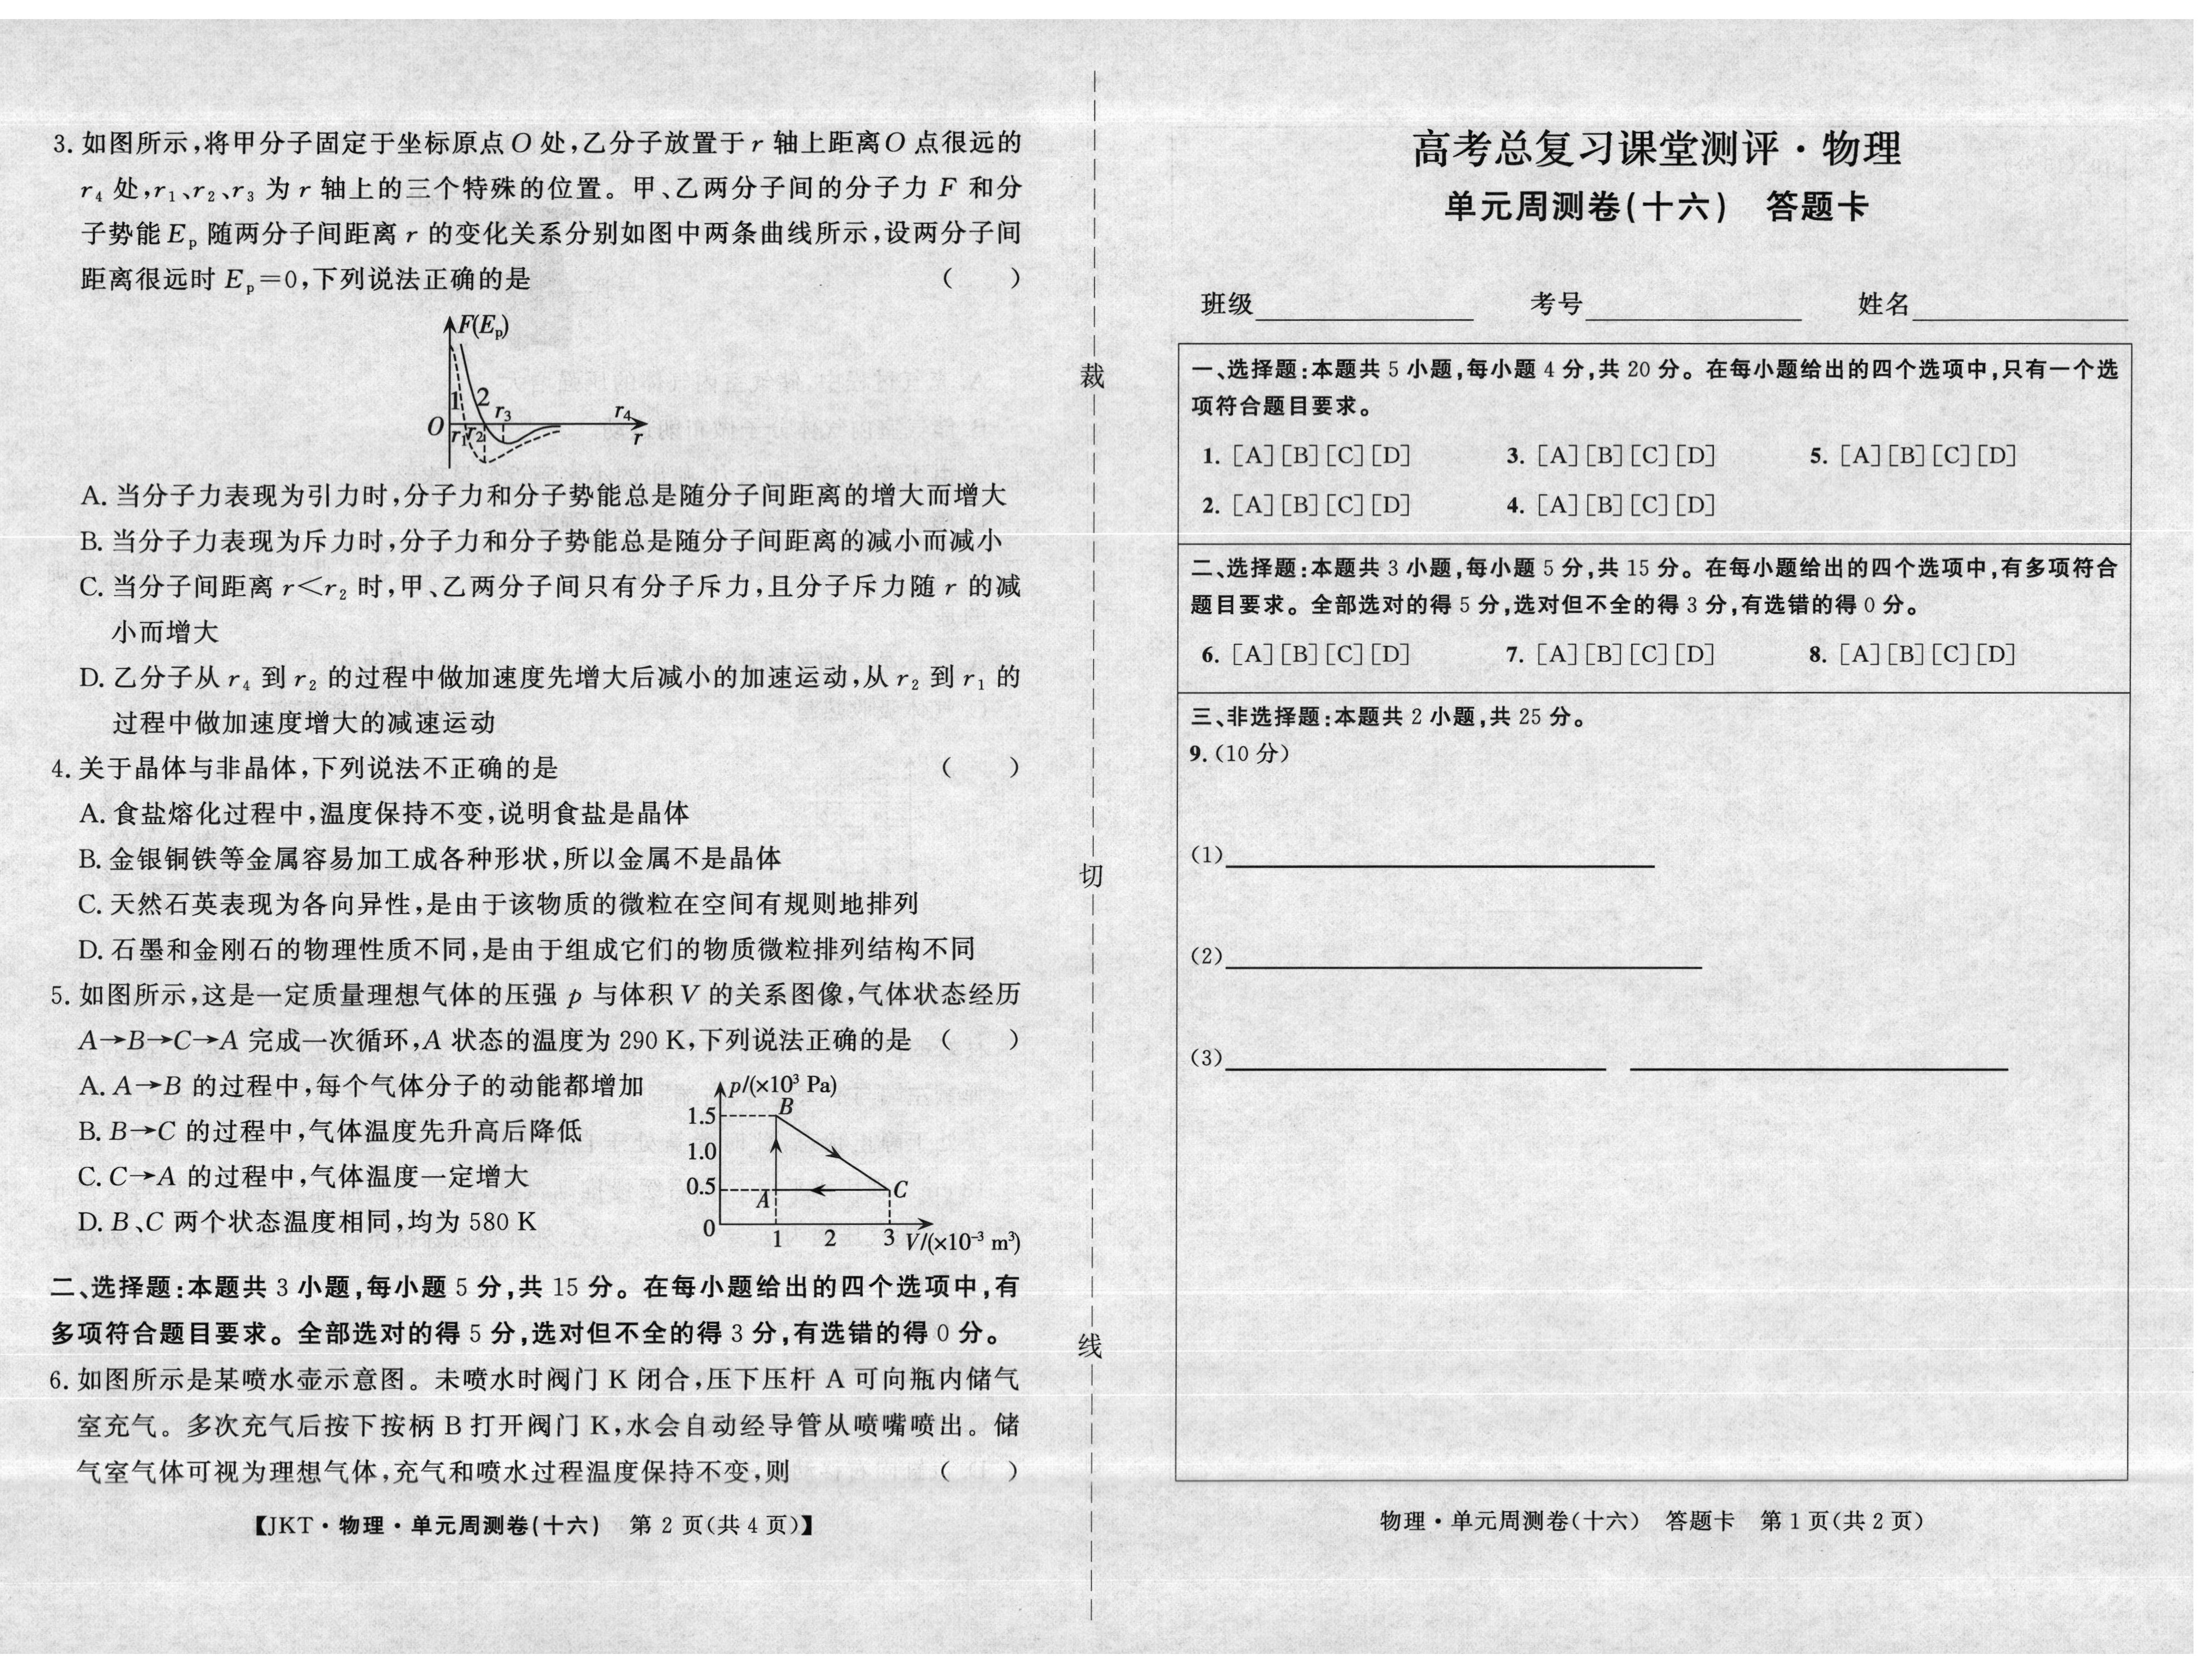 3. 如图所示,将甲分子固定于坐标原点O 处,乙分子放置于r 轴上距离O 点很远的
r₄ 处,r₁、r₂、r₃ 为 r 轴上的三个特殊的位置。甲、乙两分子间的分子力 F 和分
子势能Eₚ 随两分子间距离 r 的变化关系分别如图中两条曲线所示,设两分子间
距离很远时 Eₚ=0,下列说法正确的是 ( )
F(Eₚ)
1 2 r₃ r₄
O r₁ r₂ r
A. 当分子力表现为引力时,分子力和分子势能总是随分子间距离的增大而增大
B. 当分子力表现为斥力时,分子力和分子势能总是随分子间距离的减小而减小
C. 当分子间距离 r<r₂ 时,甲、乙两分子间只有分子斥力,且分子斥力随 r 的减
小而增大
D. 乙分子从 r₄ 到 r₂ 的过程中做加速度先增大后减小的加速运动,从 r₂ 到 r₁ 的
过程中做加速度增大的减速运动
4. 关于晶体与非晶体,下列说法不正确的是 ( )
A. 食盐熔化过程中,温度保持不变,说明食盐是晶体
B. 金银铜铁等金属容易加工成各种形状,所以金属不是晶体
C. 天然石英表现为各向异性,是由于该物质的微粒在空间有规则地排列
D. 石墨和金刚石的物理性质不同,是由于组成它们的物质微粒排列结构不同
5. 如图所示,这是一定质量理想气体的压强 p 与体积 V 的关系图像,气体状态经历
A→B→C→A 完成一次循环,A 状态的温度为 290 K,下列说法正确的是 ( )
A. A→B 的过程中,每个气体分子的动能都增加
B. B→C 的过程中,气体温度先升高后降低
C. C→A 的过程中,气体温度一定增大
D. B、C 两个状态温度相同,均为 580 K
p/(×10³ Pa)
1.5 B
1.0
0.5 A C
0 1 2 3 V/(×10⁻³ m³)
二、选择题:本题共 3 小题,每小题 5 分,共 15 分。在每小题给出的四个选项中,有
多项符合题目要求。全部选对的得 5 分,选对但不全的得 3 分,有选错的得 0 分。
6. 如图所示是某喷水壶示意图。未喷水时阀门 K 闭合,压下压杆 A 可向瓶内储气
室充气。多次充气后按下按柄 B 打开阀门 K,水会自动经导管从喷嘴喷出。储
气室气体可视为理想气体,充气和喷水过程温度保持不变,则 ( )
【JKT·物理·单元周测卷(十六) 第 2 页(共 4 页)】
裁
切
线
高考总复习课堂测评·物理
单元周测卷(十六) 答题卡
班级 考号 姓名
一、选择题:本题共 5 小题,每小题 4 分,共 20 分。在每小题给出的四个选项中,只有一个选
项符合题目要求。
1. [A][B][C][D] 3. [A][B][C][D] 5. [A][B][C][D]
2. [A][B][C][D] 4. [A][B][C][D]
二、选择题:本题共 3 小题,每小题 5 分,共 15 分。在每小题给出的四个选项中,有多项符合
题目要求。全部选对的得 5 分,选对但不全的得 3 分,有选错的得 0 分。
6. [A][B][C][D] 7. [A][B][C][D] 8. [A][B][C][D]
三、非选择题:本题共 2 小题,共 25 分。
9. (10 分)
(1)
(2)
(3)
物理·单元周测卷(十六) 答题卡 第 1 页(共 2 页)